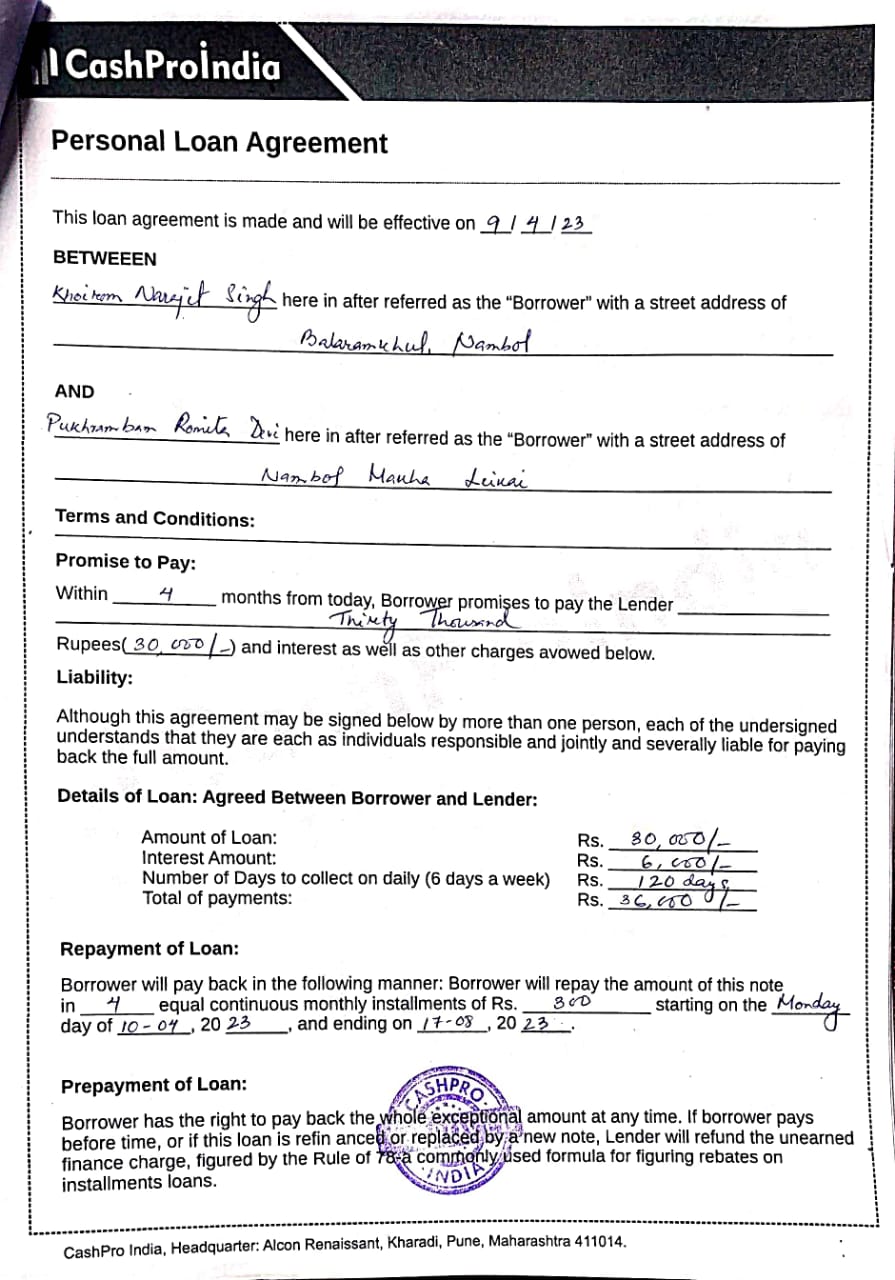 CashProIndia
Personal Loan Agreement
This loan agreement is made and will be effective on 9 / 4 / 23
BETWEEEN
Khoirom Narejit Singh here in after referred as the “Borrower” with a street address of
Balaramkhul, Nambol
AND
Pukhrambam Romita Devi here in after referred as the “Borrower” with a street address of
Nambol Mauha Leikai
Terms and Conditions:
Promise to Pay:
Within 4 months from today, Borrower promises to pay the Lender
Thirety Thousand
Rupees( 30,000/-) and interest as well as other charges avowed below.
Liability:
Although this agreement may be signed below by more than one person, each of the undersigned
understands that they are each as individuals responsible and jointly and severally liable for paying
back the full amount.
Details of Loan: Agreed Between Borrower and Lender:
Amount of Loan: Rs. 30,000/-
Interest Amount: Rs. 6,000/-
Number of Days to collect on daily (6 days a week) Rs. 120 days
Total of payments: Rs. 36,000/-
Repayment of Loan:
Borrower will pay back in the following manner: Borrower will repay the amount of this note
in 4 equal continuous monthly installments of Rs. 300 starting on the Monday
day of 10-04, 20 23, and ending on 17-08, 20 23.
Prepayment of Loan:
CASHPRO
Borrower has the right to pay back the whole exceptional amount at any time. If borrower pays
before time, or if this loan is refin anced or replaced by a new note, Lender will refund the unearned
finance charge, figured by the Rule of 78-a commonly used formula for figuring rebates on
INDIA
installments loans.
CashPro India, Headquarter: Alcon Renaissant, Kharadi, Pune, Maharashtra 411014.